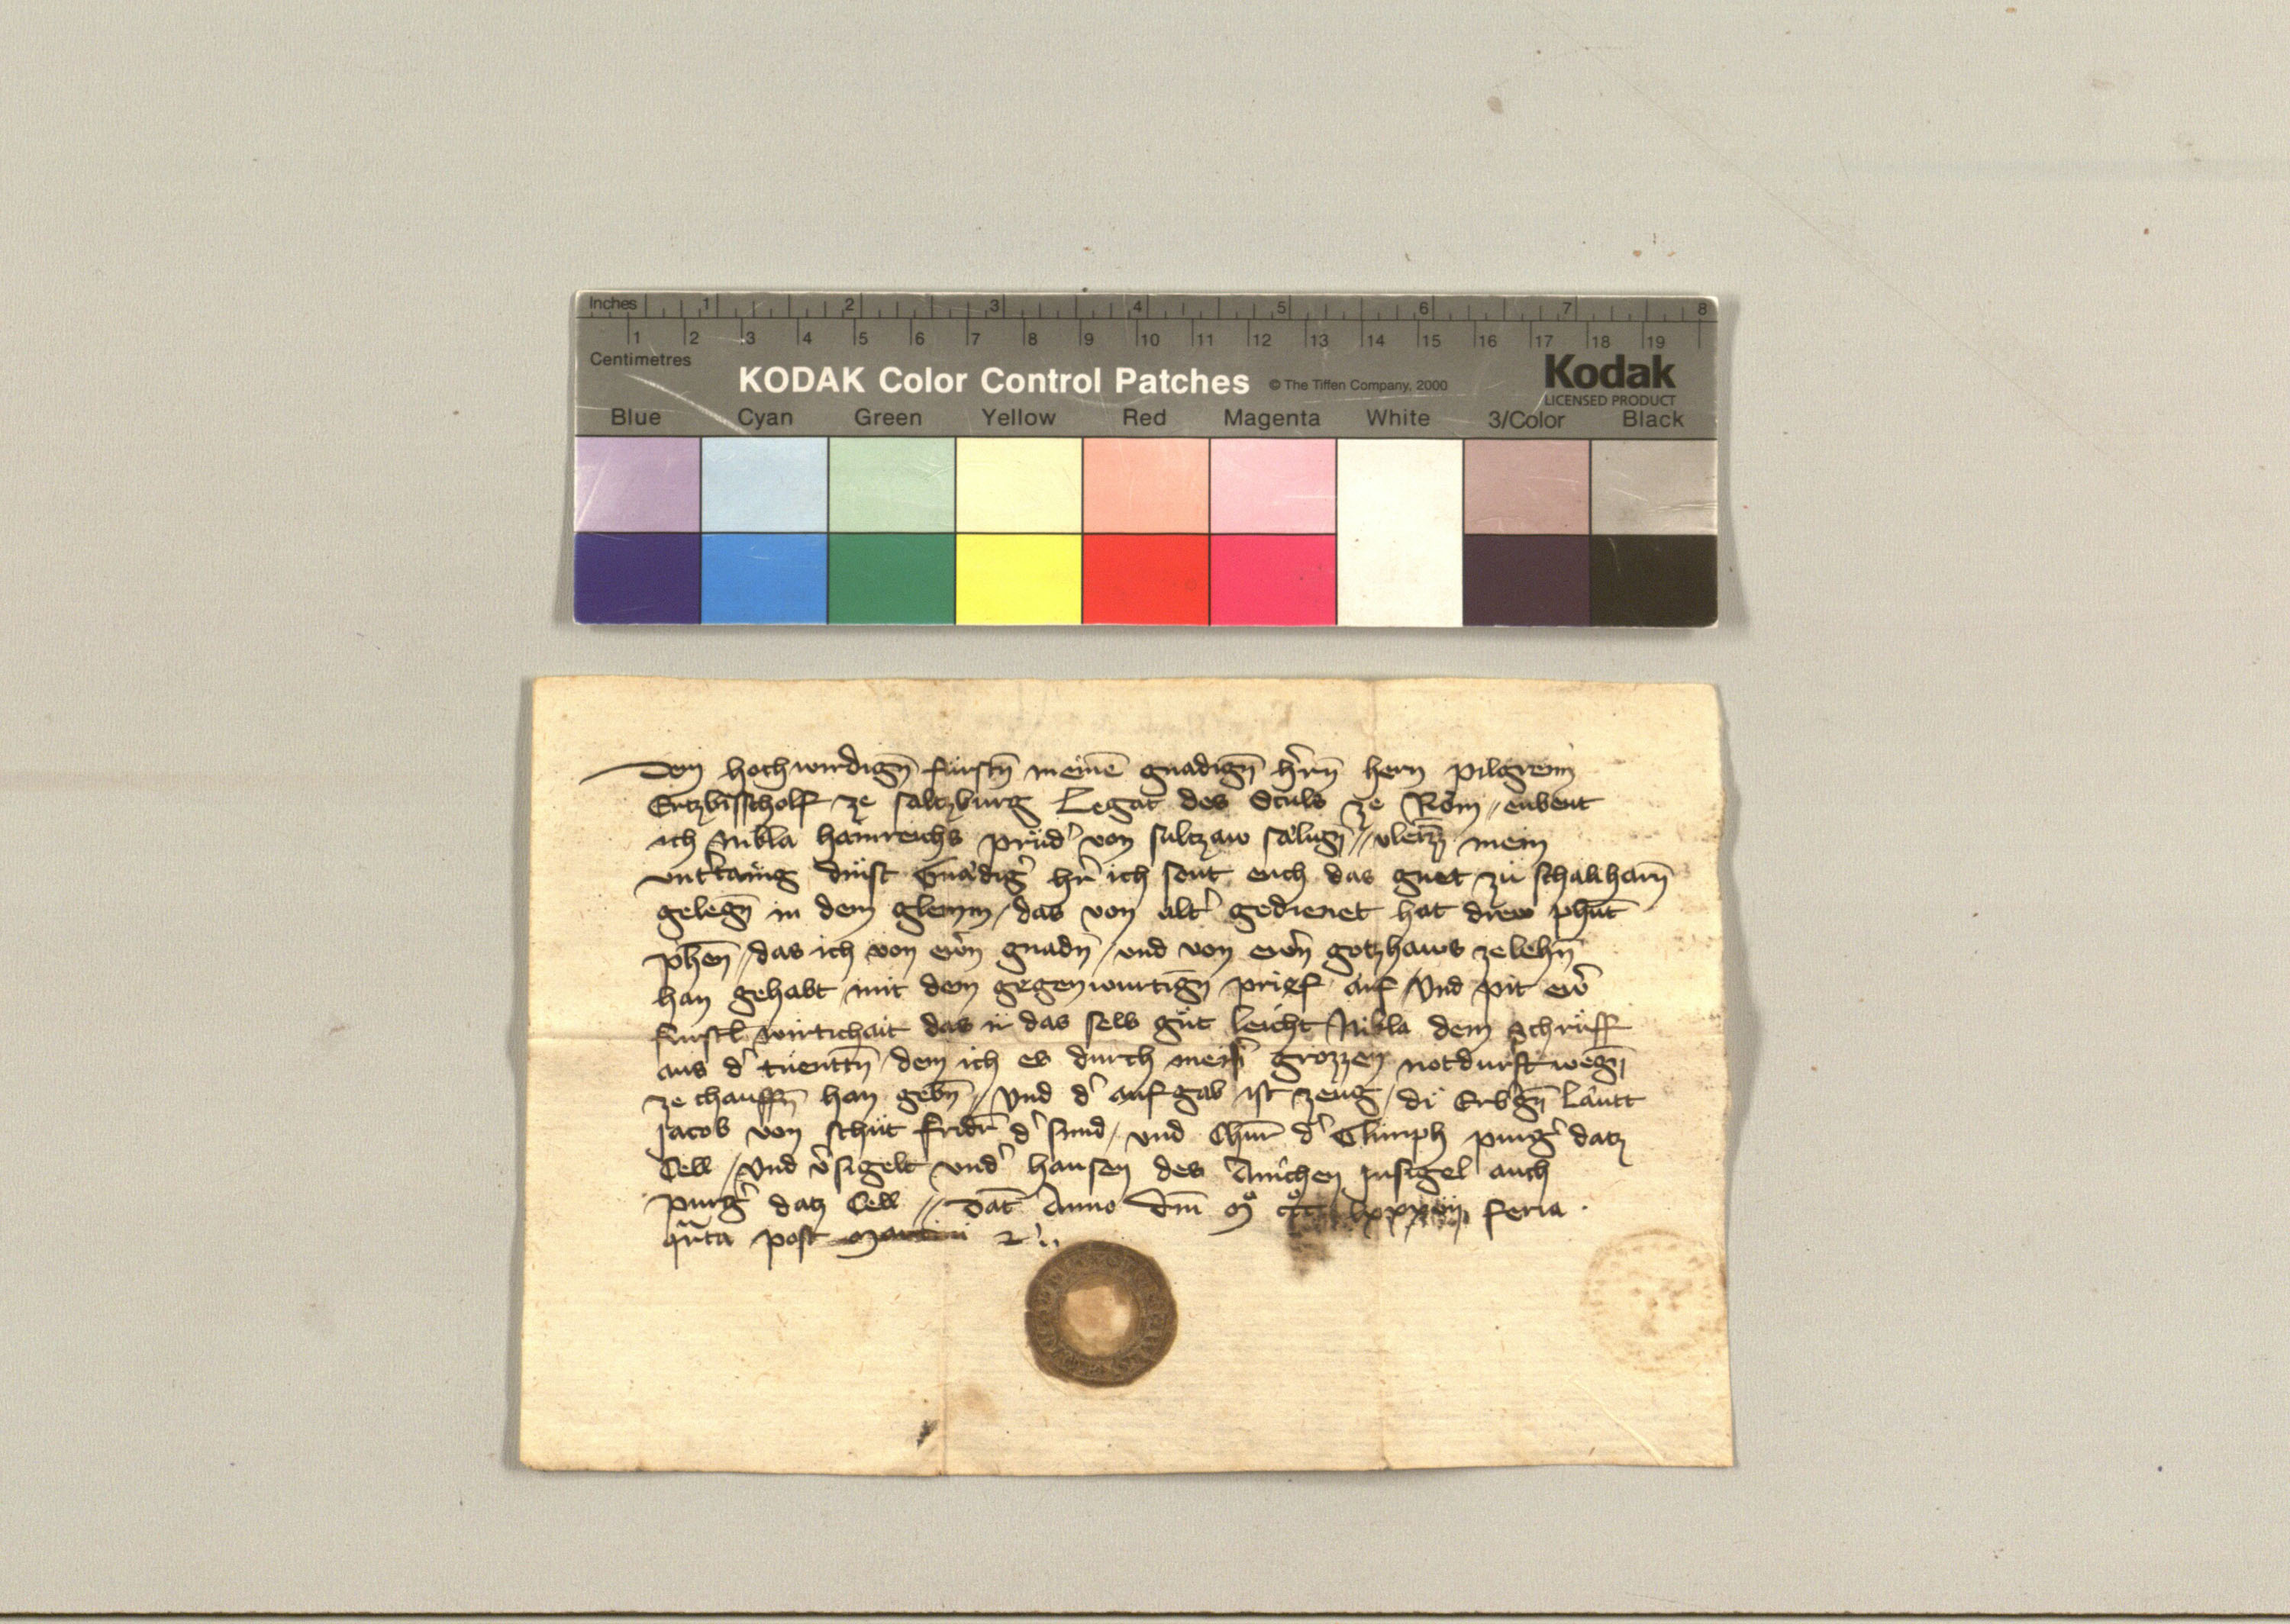 Inches 1 2 3 4 5 6 7 8
1 2 3 4 5 6 7 8 9 10 11 12 13 14 15 16 17 18 19
Centimetres
KODAK Color Control Patches © The Tiffen Company, 2000 Kodak
LICENSED PRODUCT
Blue Cyan Green Yellow Red Magenta White 3/Color Black
Dem hochwirdign̄ fürstn̄ meinē gnadign̄ hr̄n hern pilgreim
Ertzbisscholf ze saltzburg Legat des Stuls ze Rom // enbeut
ich Nikla hainreichs prüd' von sultzaw sälign̄ // mein
vnt'tänig dinst Gnädig' hr̄ ich sent euch das guet zü schalkharn̄
gelegn̄ in dem glemm / das von alt' gedienet hat drew phūt
phēn / das ich von ewrn gnadn̄ / vnd von ewrn gotzhaws ze lehn̄
han gehabt / mit dem gegenwurtign̄ prief auf / Vnd pit ew'
fürstl̄ wirtichait das ir das selb güt leicht Nikla dem Schrüff
aus d' tüenttn̄ / dem ich es durch meiner grozzen notdurft wegn̄
ze chauffn̄ han gebn̄ // Vnd d' aufgab ist zeug / di Erb'gn̄ läutt
Jacob von schüt fridr̄ d' / vnd Chūr d' purg' datz
Cell / Vnd v'sigelt vnd' hansen des Insigel auch
purg' datz Cell // Dat̄ Anno dm̄ mº cccº lxxxiij feria
qr̄ta post Martini